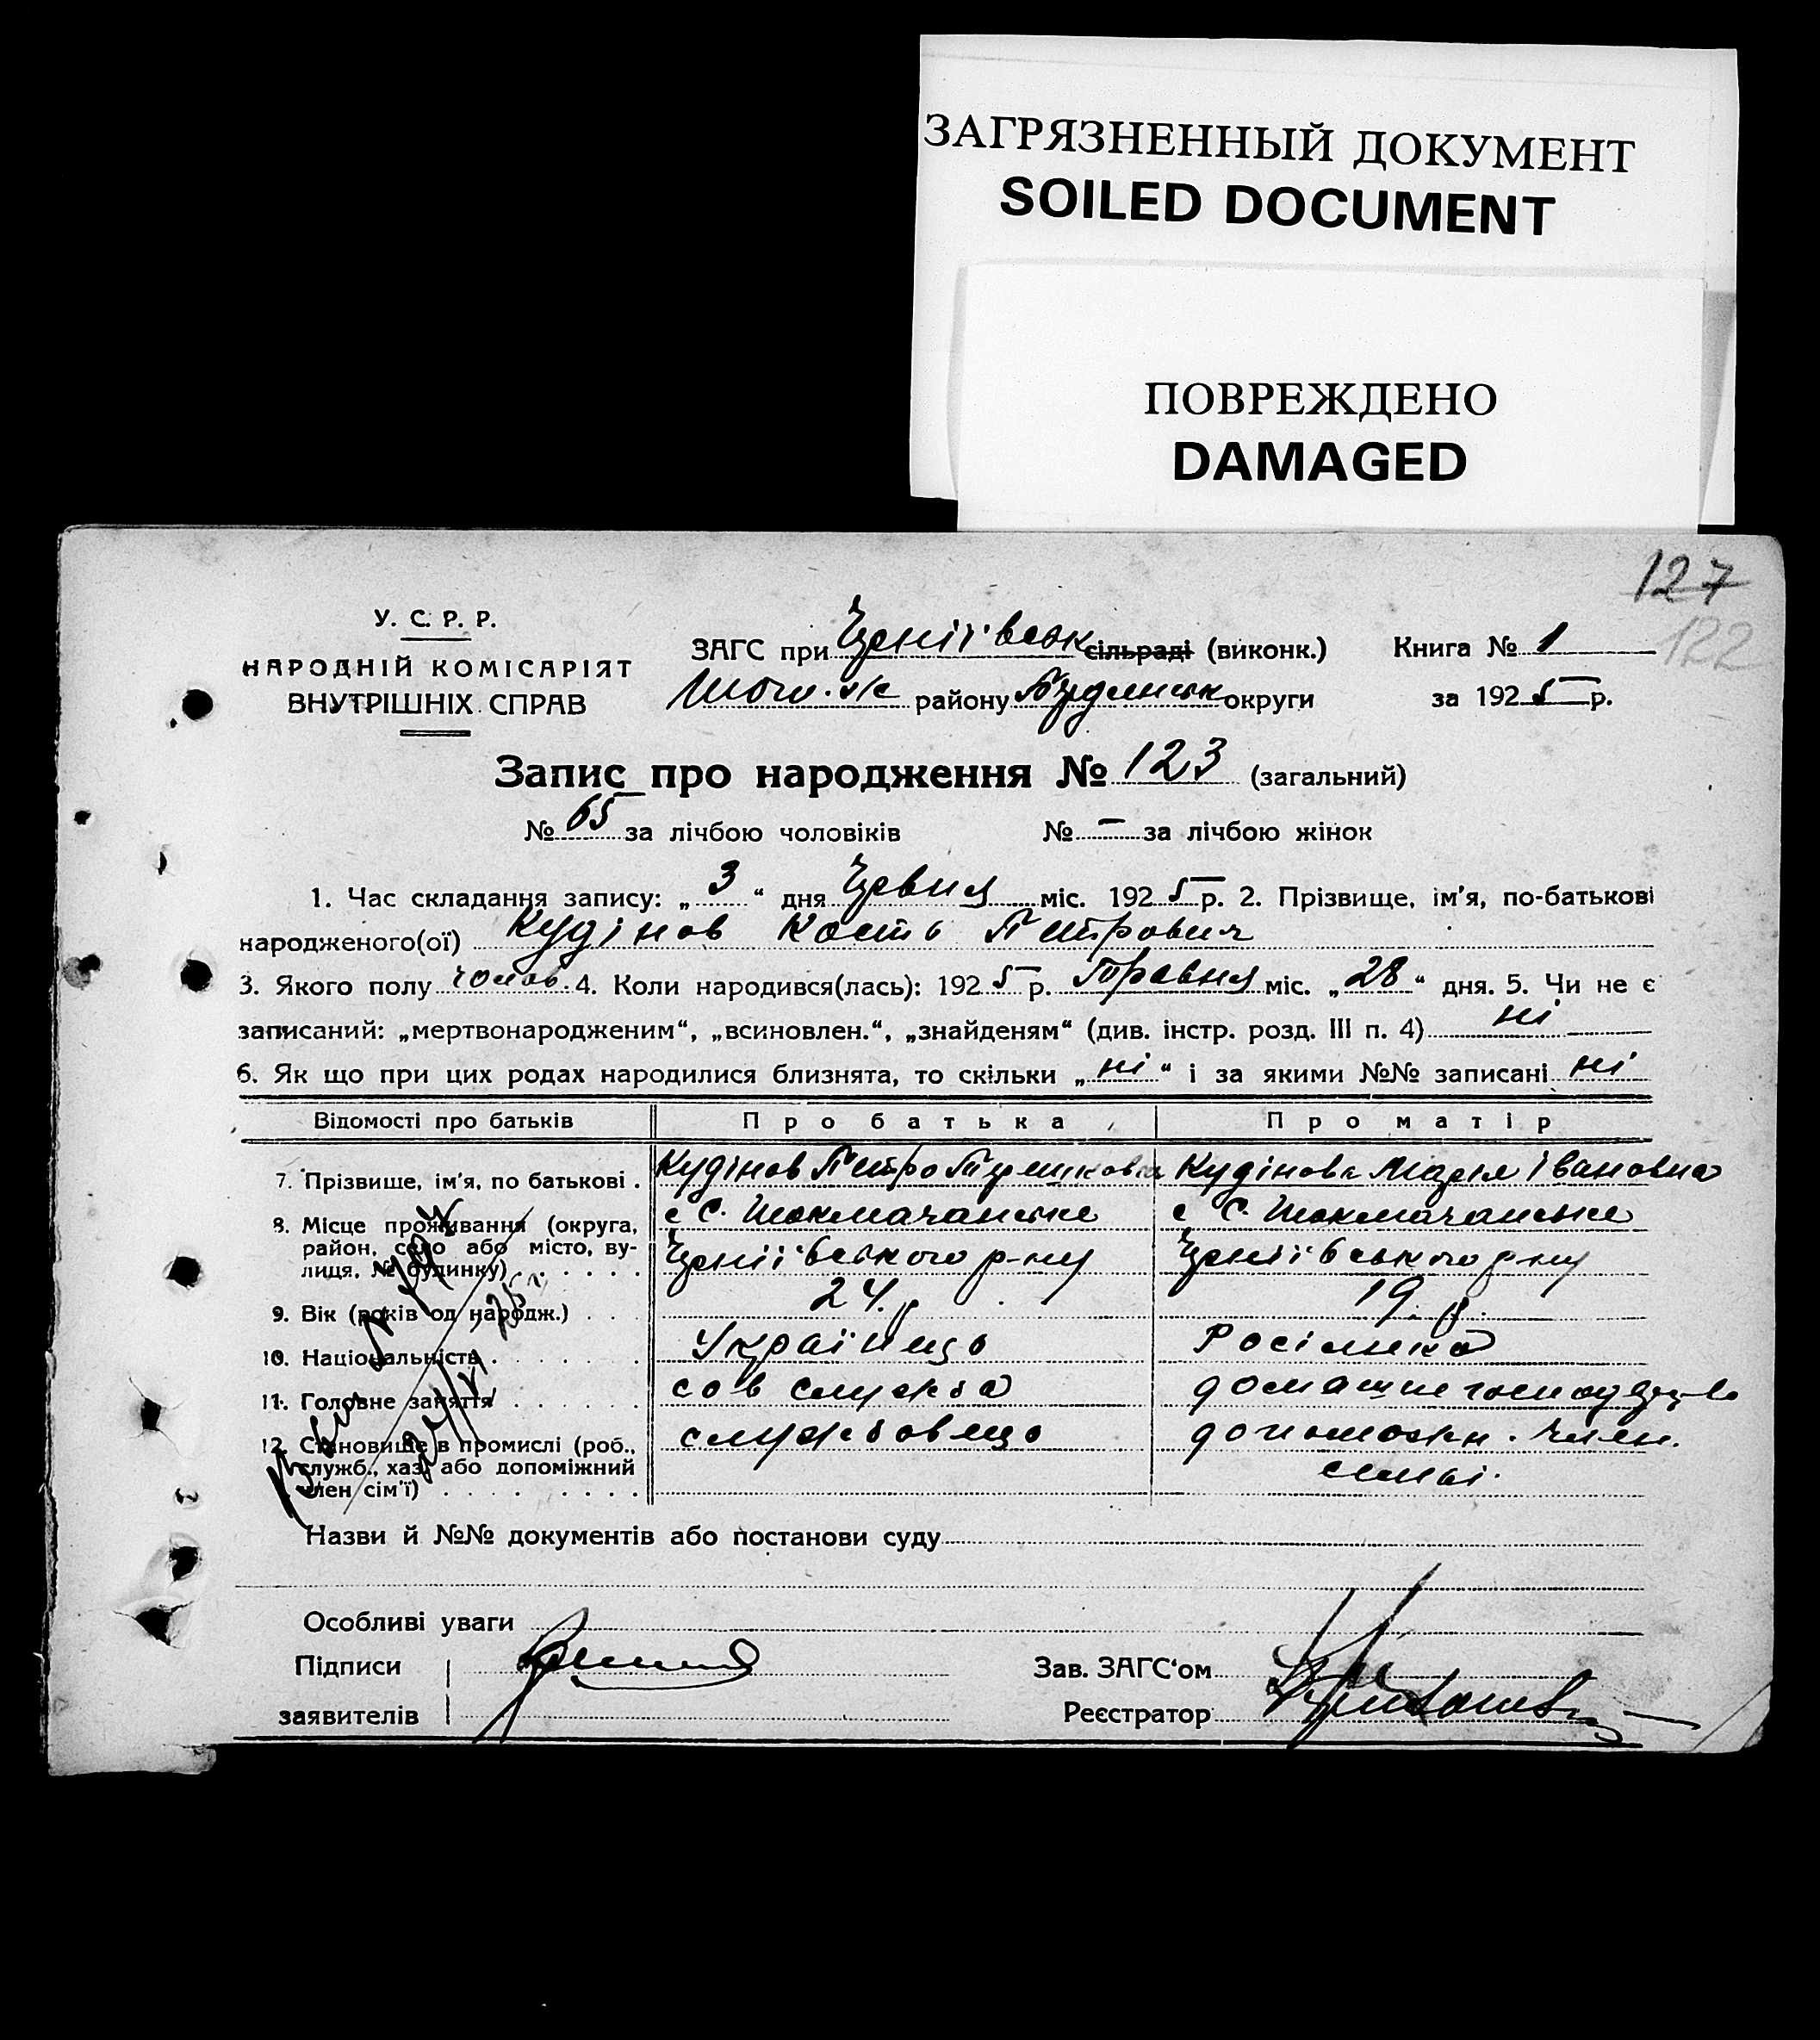 ЗАГРЯЗНЕННЫЙ ДОКУМЕНТ
SOILED DOCUMENT
ПОВРЕЖДЕНО
DAMAGED
127
122
У. С. Р. Р.
НАРОДНІЙ КОМІСАРІЯТ
ВНУТРІШНІХ СПРАВ
ЗАГС при сільраді (виконк.)
району округи
Книга № 1
за 1925 р.
Запис про народження № 123 (загальний)
№ 65 за лічбою чоловіків № — за лічбою жінок
1. Час складання запису: „ 3 “ дня Червня міс. 1925 р. 2. Прізвище, ім'я, по-батькові
народженого(ої) Кудінов Кость Петрович
3. Якого полу чолов. 4. Коли народився(лась): 1925 р. Травня міс. „ 28 “ дня. 5. Чи не є
записаний: „мертвонародженим“, „всиновлен.“, „знайденям“ (див. інстр. розд. III п. 4) ні
6. Як що при цих родах народилися близнята, то скільки „ ні “ і за якими №№ записані ні
Відомості про батьків Про батька Про матір
7. Прізвище, ім'я, по батькові . Кудінов Петро Кудінова Марія Івановна
8. Місце проживання (округа, район, село або місто, вулиця, № будинку) с. р-ну с. р-ну
9. Вік (років од народж.) . . . 24 р. 19 р.
10. Національність . . . . . . Українець
11. Головне заняття . . . . . . сов служба домашне
12. Становище в промислі (роб., служб., хаз. або допоміжний член сім'ї) . . . . . . . . . службовець член.
семьі.
Назви й №№ документів або постанови суду
Особливі уваги
Підписи
заявителів
Зав. ЗАГС'ом
Реєстратор